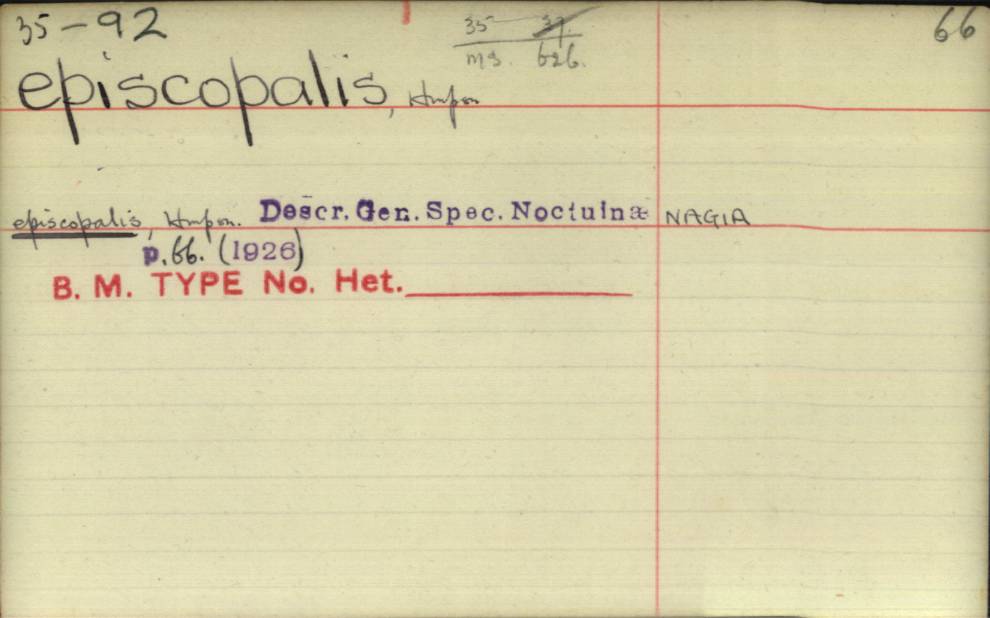 35-92
35 37.
66
ms. 626.
episcopalis, Hmpsn
episcopalis, Hmpsn. Descr. Gen. Spec. Noctuinæ NAGIA
p. 66. (1926)
B. M. TYPE No. Het.